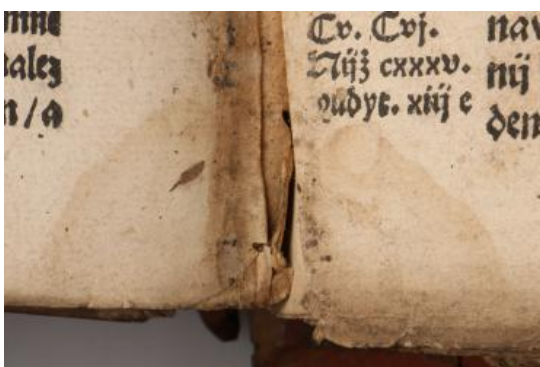 mne
alez
n / a
Cv. Cvj.
Nijž cxxxv.
xiij e
nav
nij
den